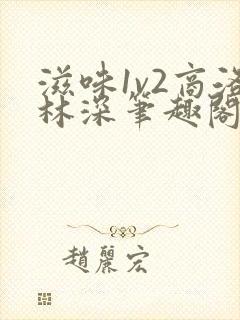 滋味1v2高洛
林深笔趣阁
趙麗宏